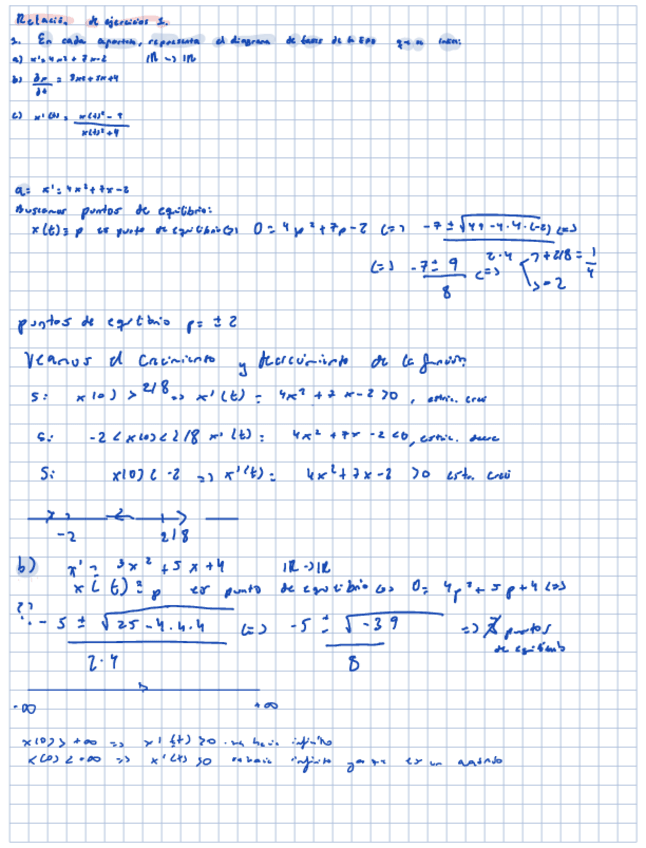 Relación de ejercicios 1.
1. En cada apartado, representa el diagrama de fases de la EDO que se
a) x' = 4x² + 7x - 2 ℝ -> ℝ
b) dx/dt = 3x² + 5x + 4
c) x'(t) = (x(t)² - 9)/(x(t)² + 9)
a = x' = 4x² + 7x - 2
Buscamos puntos de equilibrio:
x(t) ≡ p es punto de equilibrio <=> 0 = 4p² + 7p - 2 <=> (-7 ± √(49 - 4·4·(-2)))/(2·4) <=>
<=> (-7 ± 9)/8 <=> 2/8 = 1/4
-2
puntos de equilibrio p = ± 2
Veamos el Crecimiento y decrecimiento de la función
Si x(0) > 2/8 => x'(t) = 4x² + 7x - 2 > 0, estric. creci
Si -2 < x(0) < 2/8 x'(t) = 4x² + 7x - 2 < 0, estric. decre
Si x(0) < -2 => x'(t) = 4x² + 7x - 2 > 0 estr. creci
-2 2/8
b) x' = 3x² + 5x + 4 ℝ -> ℝ
x(t) ≡ p es punto de equilibrio <=> 0 = 4p² + 5p + 4 <=>
?? (-5 ± √(25 - 4·4·4))/(2·4) <=> (-5 ± √(-39))/8 => ∄ puntos
de equilibrio
-∞ +∞
x(0) > +∞ => x'(t) > 0 hacia infinito
x(0) < +∞ => x'(t) > 0 va hacia infinito ya que es un